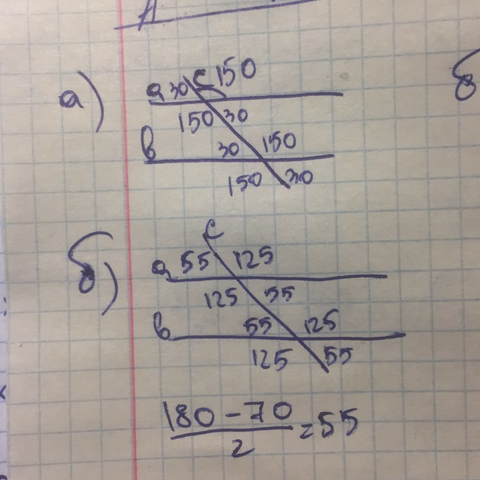 А
а)
c 150
a 30
150 30
b 30 150
150 30
б
б)
c
a 55 125
125 55
b 55 125
125 55
180 - 70
2
= 55